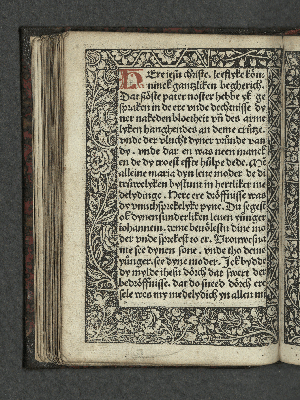 DEre jesu christe. leeflyke kön⸗
ninck gantzliken begherich.
Dat söste pater noster hebbe yk ge
spraken in de ere vnde dechtnisse dy
ner nakeden bloetheit vn̄ des arme
lyken hanghendes an deme crütze.
vnde der vlucht dyner wünde van
dy. vnde dar en was nen manck
en de dy troest effte hülpe dede. Mē
alleine maria dyn leue moder. de di
truwelyken bystunt in hertliker me
delydinge. Here ere dröffnisse was
dy vnuthsprekelyke pyne. Du segest
ok dynen sunderliken leuen yünger
iohannem. vnne beuölest in dine mo
der vnde sprekest to er. Vrouwe su
me see dynen sone. vnde tho deme
yünger. see dyne moder. Jck bydde
dy mylde ihesu dörch dat swert der
bedröffnisse. dat do sneed dörch ere
sele wes my medelydich yn allen mi